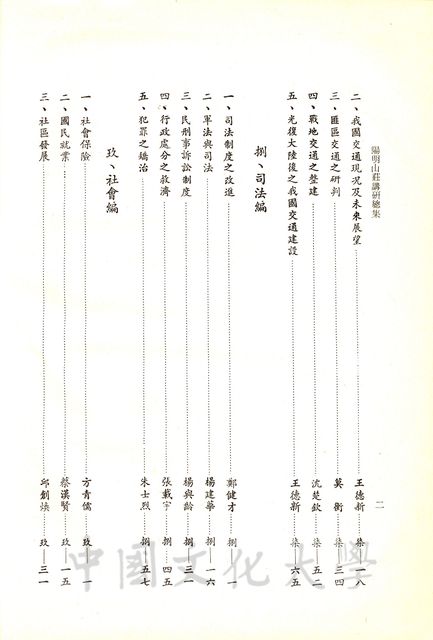 陽明山莊講研總集
二
二、我國交通現況及未來展望……王德新……柒—一八
三、匪區交通之研判……莫　衡……柒—三四
四、戰地交通之整建……沈楚欽……柒—五二
五、光復大陸後之我國交通建設……王德新……柒—六五
捌、司法編
一、司法制度之改進……鄭健才……捌—一
二、軍法與司法……楊建華……捌—一六
三、民刑事訴訟制度……楊與齡……捌—三一
四、行政處分之救濟……張載宇……捌—四五
五、犯罪之矯治……朱士烈……捌—五七
玖、社會編
一、社會保險……方青儒……玖—一
二、國民就業……蔡漢賢……玖—一五
三、社區發展……邱創煥……玖—三一
中國文化大學